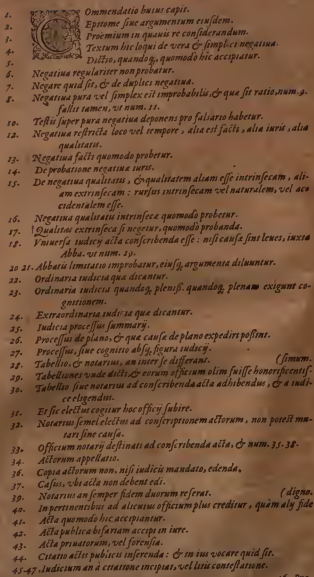 1. COmmendatio huius capit.
2. Epitome siue argumentum eiusdem.
3. Proœmium in quauis re considerandum.
4. Textum hic loqui de vera & simplici negatiua.
5. Dictio, quandoq;, quomodo hic accipiatur.
6. Negatiua regulariter non probatur.
7. Negare quid sit, & de duplici negatiua.
8. Negatiua pura vel simplex est improbabilis, & que sit ratio, num. 9. fallit tamen, vt num. 11.
10. Testis super pura negatiua deponens pro falsario habetur.
12. Negatiua restricta loco vel tempore, alia est facti, alia iuris, alia qualitatis.
13. Negatiua facti quomodo probetur.
14. De probatione negatiuæ iuris.
15. De negatiua qualitatis, & qualitatem aliam esse intrinsecam, aliam extrinsecam: rursus intrinsecam vel naturalem, vel accidentalem esse.
16. Negatiua qualitatis intrinsecæ quomodo probetur.
17. Qualitas extrinseca si negetur, quomodo probanda.
18. Vniuersa iudicij acta conscribenda esse: nisi causæ sint leues, iuxta Abba. vt num. 19.
20 21. Abbatis limitatio improbatur, eiusq; argumenta diluuntur.
22. Ordinaria iudicia que dicantur.
23. Ordinaria iudicia quandoq; pleniss. quandoq; plenam exigunt cognitionem.
24. Extraordinaria iudicia que dicantur.
25. Iudicia processus summarij.
26. Processus de plano, & que causæ de plano expediri possint.
27. Processus, siue cognitio absq; figura iudicij.
28. Tabellio, & notarius, an inter se differant. (simum.
29. Tabelliones vnde dicti, & eorum officium olim fuisse honorificentis-
30. Tabellio siue notarius ad conscribenda acta adhibendus, & a iudice eligendus.
31. Et sic electus cogitur hoc officij subire.
32. Notarius semel electus ad conscriptionem actorum, non potest mutari sine causa.
33. Officium notarij destinati ad conscribenda acta, & num. 35. 38.
34. Actorum appellatio.
36. Copia actorum non, nisi iudicis mandato, edenda.
37. Casus, vbi acta non debent edi.
39. Notarius an semper fidem duorum referat. (digno.
40. In pertinentibus ad alicuius officium plus creditur, quàm aly fide
41. Acta quomodo hic accipiantur.
42. Acta publica bifariam accepi in iure.
43. Acta priuatorum, vel forensia.
44. Citatio actis publicis inserenda: & in ius vocare quid sit.
45-47. Iudicium an à citatione incipiat, vel litis contestatione.